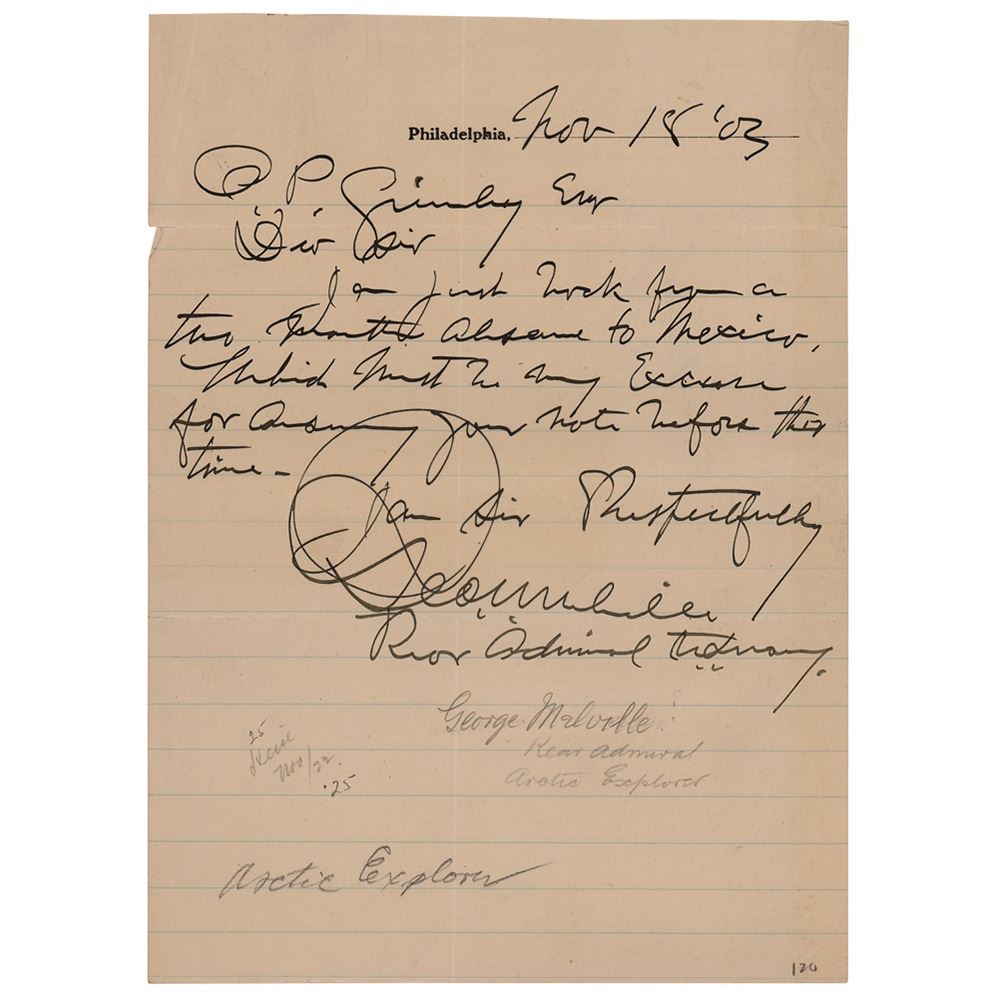 Philadelphia, Nov 18 '03
P. Grimley Esqr
Dir Sir
I am just back from a
two months absence to Mexico,
Which Must be my Excuse
for your note before this
time -
I am Sir Respectfully
Geo W Melville
Rear Admiral
George Melville
Rear Admiral
Arctic Explorer
25
Nov/22.
.25
Arctic Explorer
120